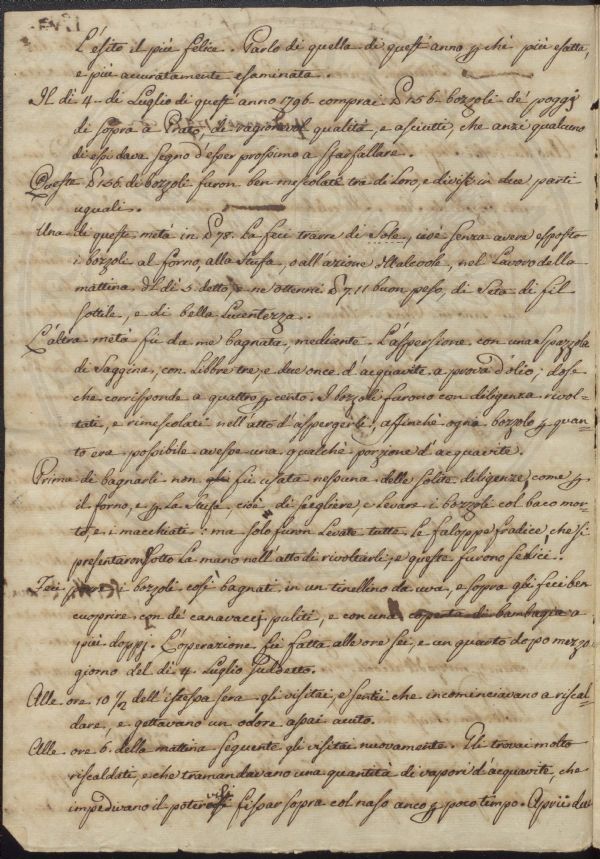 L'ésito il più felice. Parlo di quella di quest'anno p chè più esatta,
e più accuratamente esaminata.
Il dì 4 di Luglio di quest'anno 1796 comprai 156 bozzoli de' poggj
di sopra a Prato, di ragionevol qualità, e asciutti, che anzi qualcuno
di essi dava segno d'esser prossimo a sfarfallare.
Queste 156 di bozzoli furon ben mescolate tra di Loro, e divise in due parti
uguali.
Una di queste metà in 78. La feci trarre di Sole, cioè senza avere esposto
i bozzoli al forno, alla Stufa, o all'azione dell'alcoole, nel Lavoro della
mattina del dì 5 detto, e ne ottenni 7.11 buon peso, di Seta di fil
sottile, e di bella Lucentezza.
L'altra metà fù da me bagnata, mediante L'aspersione con una Spazzola
di Saggina, con Libbre tre, e due once d'acquavite a prova d'olio; dose
che corrisponde a quattro p cento. I bozzoli furono con diligenza rivol-
tati, e rimescolati nell'atto d'aspergerli, affinchè ogni bozzolo p quan-
to era possibile avesse una qualchè porzione d'acquavite.
Prima di bagnarli non fù usata nessuna delle solite diligenze, come p
il forno, e p La Stufa, cioè di scegliere, e Levare i bozzoli col baco mor-
to, e i macchiati: ma solo furon Levate tutte le faloppe fradice che si
presentaron sotto La mano nell'atto di rivoltarli, e queste furono sedici.
Feci i bozzoli così bagnati in un tinellino da uva, e sopra gli feci ben
cuoprire con de' canavacci puliti, e con una coperta di bambagia a
più doppj. L'operazione fù fatta alle ore sei, e un quarto dopo mezzo
giorno del dì 4 Luglio suddetto.
Alle ore 10 1/2 dell'istessa sera gli visitai, e sentii che incominciavano a riscal-
dare, e gettavano un odóre assai acuto.
Alle ore 6 della mattina seguente gli visitai nuovamente. Gli trovai molto
riscaldati, e che tramandavano una quantità di vapori d'acquavite, che
impedivano il poter visi fissar sopra col naso anco p poco tempo. Aprii da